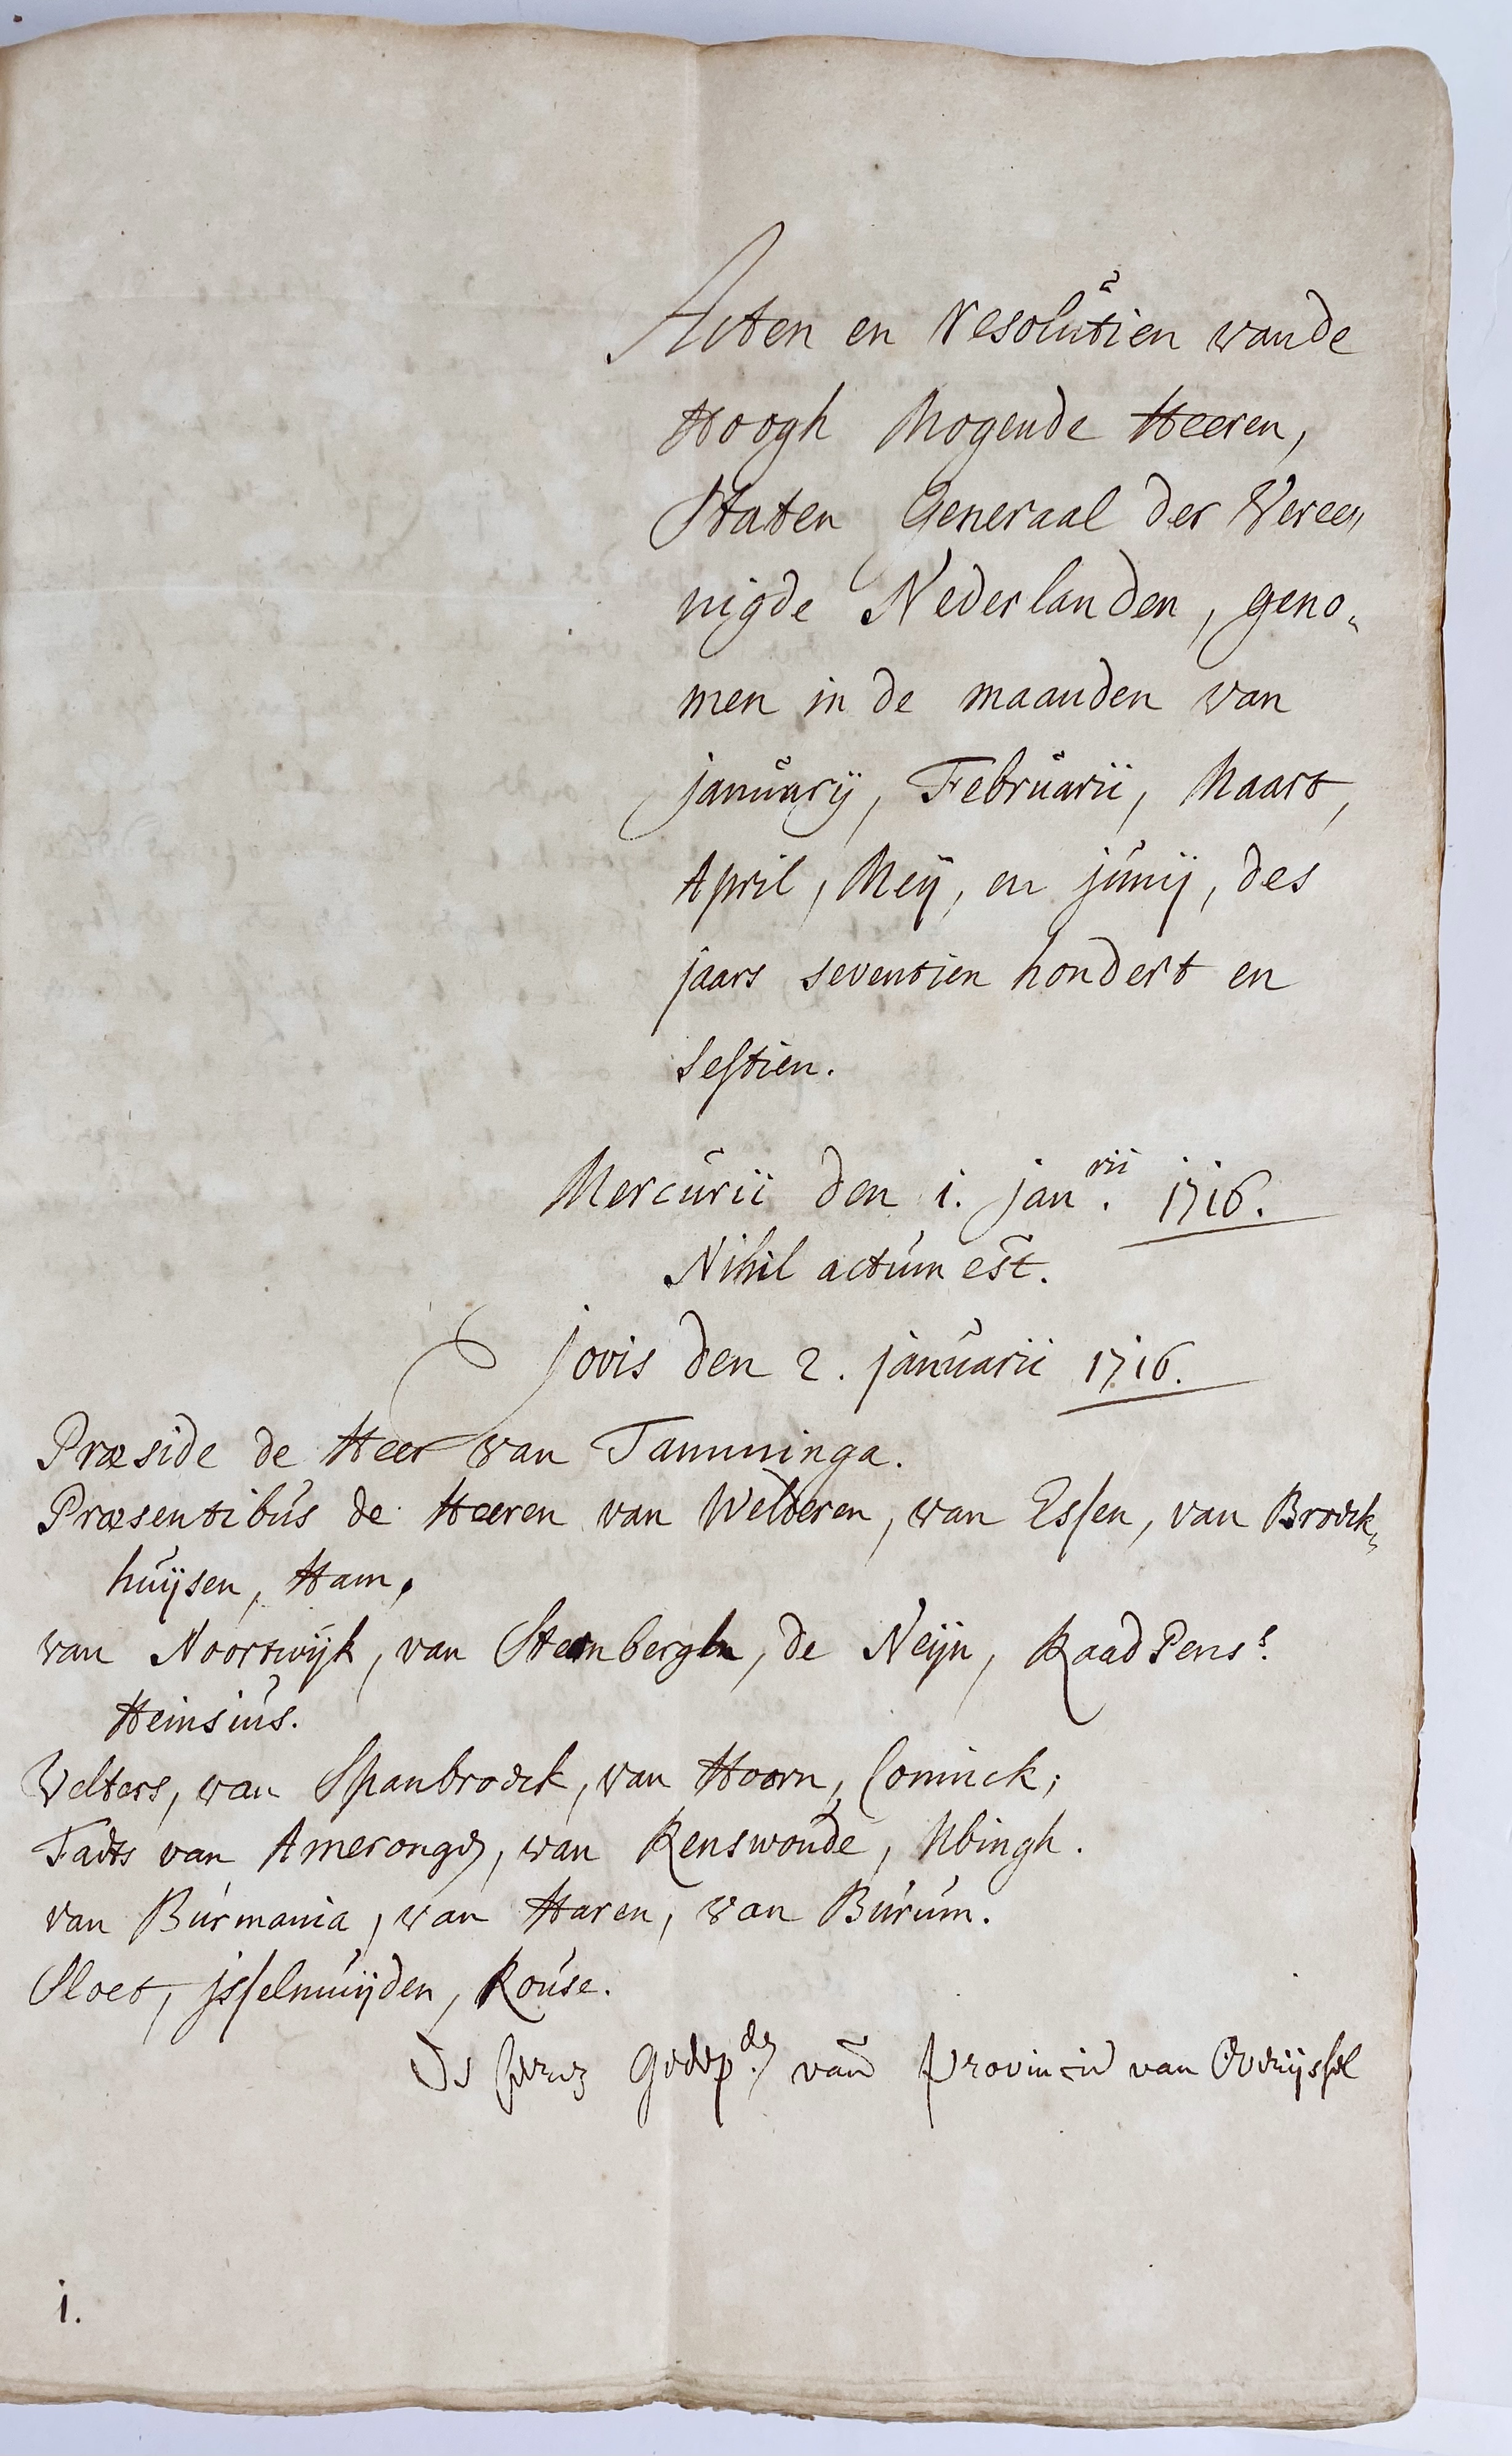 Acten en resolutien vande
Hoogh Mogende Heeren,
Staten Generaal der Veree„
nigde Nederlanden, geno„
men in de maanden van
januarij, Februarii, Maart,
April, Meij, en junij, des
jaars seventien hondert en
sestien.
Mercurii den 1. jan.rii 1716.
Nihil actum est.
Jovis den 2. januarii 1716.
Præside de Heer van Tamminga.
Præsentibus de Heeren van Welderen, van Essen, van Broeck„
huijsen, Ham,
van Noortwijk, van Steenbergh, de Neijn, Raad Pens.s
Heinsius.
Velters, van Spanbroeck, van Hoorn, Coninck;
Taets van Amerongen, van Renswoude, Ubingh.
van Burmania, van Haren, van Burum.
Sloet, jsselmuijden, Rouse.
De heeren Gedep.den vande Provincie van Overijssel
1.